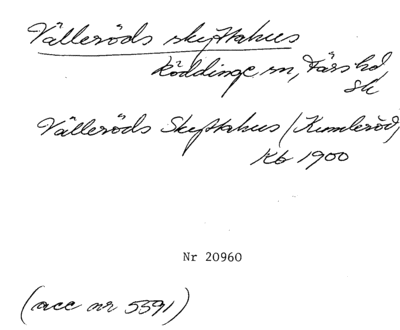 Välleröds skiftahus
Röddinge sn, Färs hd
Sk
Välleröds Skiftahus (Kumleröd)
Kb 1900
Nr 20960
(acc nr 5591)